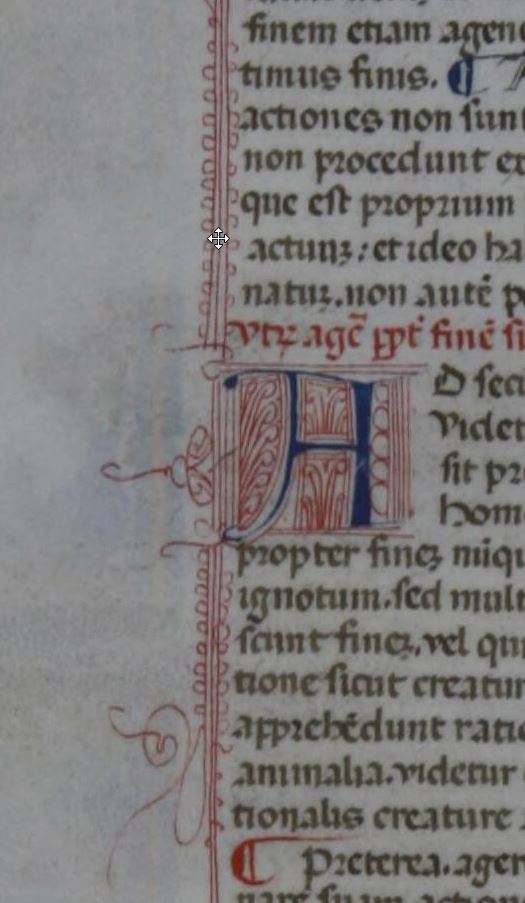 finem etiam agen
timus finis. ¶
actiones non sunt
non procedunt ex
que est proprium
actuuꝫ: et ideo ha
natuꝝ. non autē p
vtꝝ agē ppt̄ finē si
A D secu
videt
sit pr
hom
propter fineꝫ niqu
ignotum. sed mult
sciunt fineꝫ, vel qui
tione sicut creatur
apprehēdunt ratio
animalia. videtur
tionalis creature
¶ Preterea. agen
nare suam action